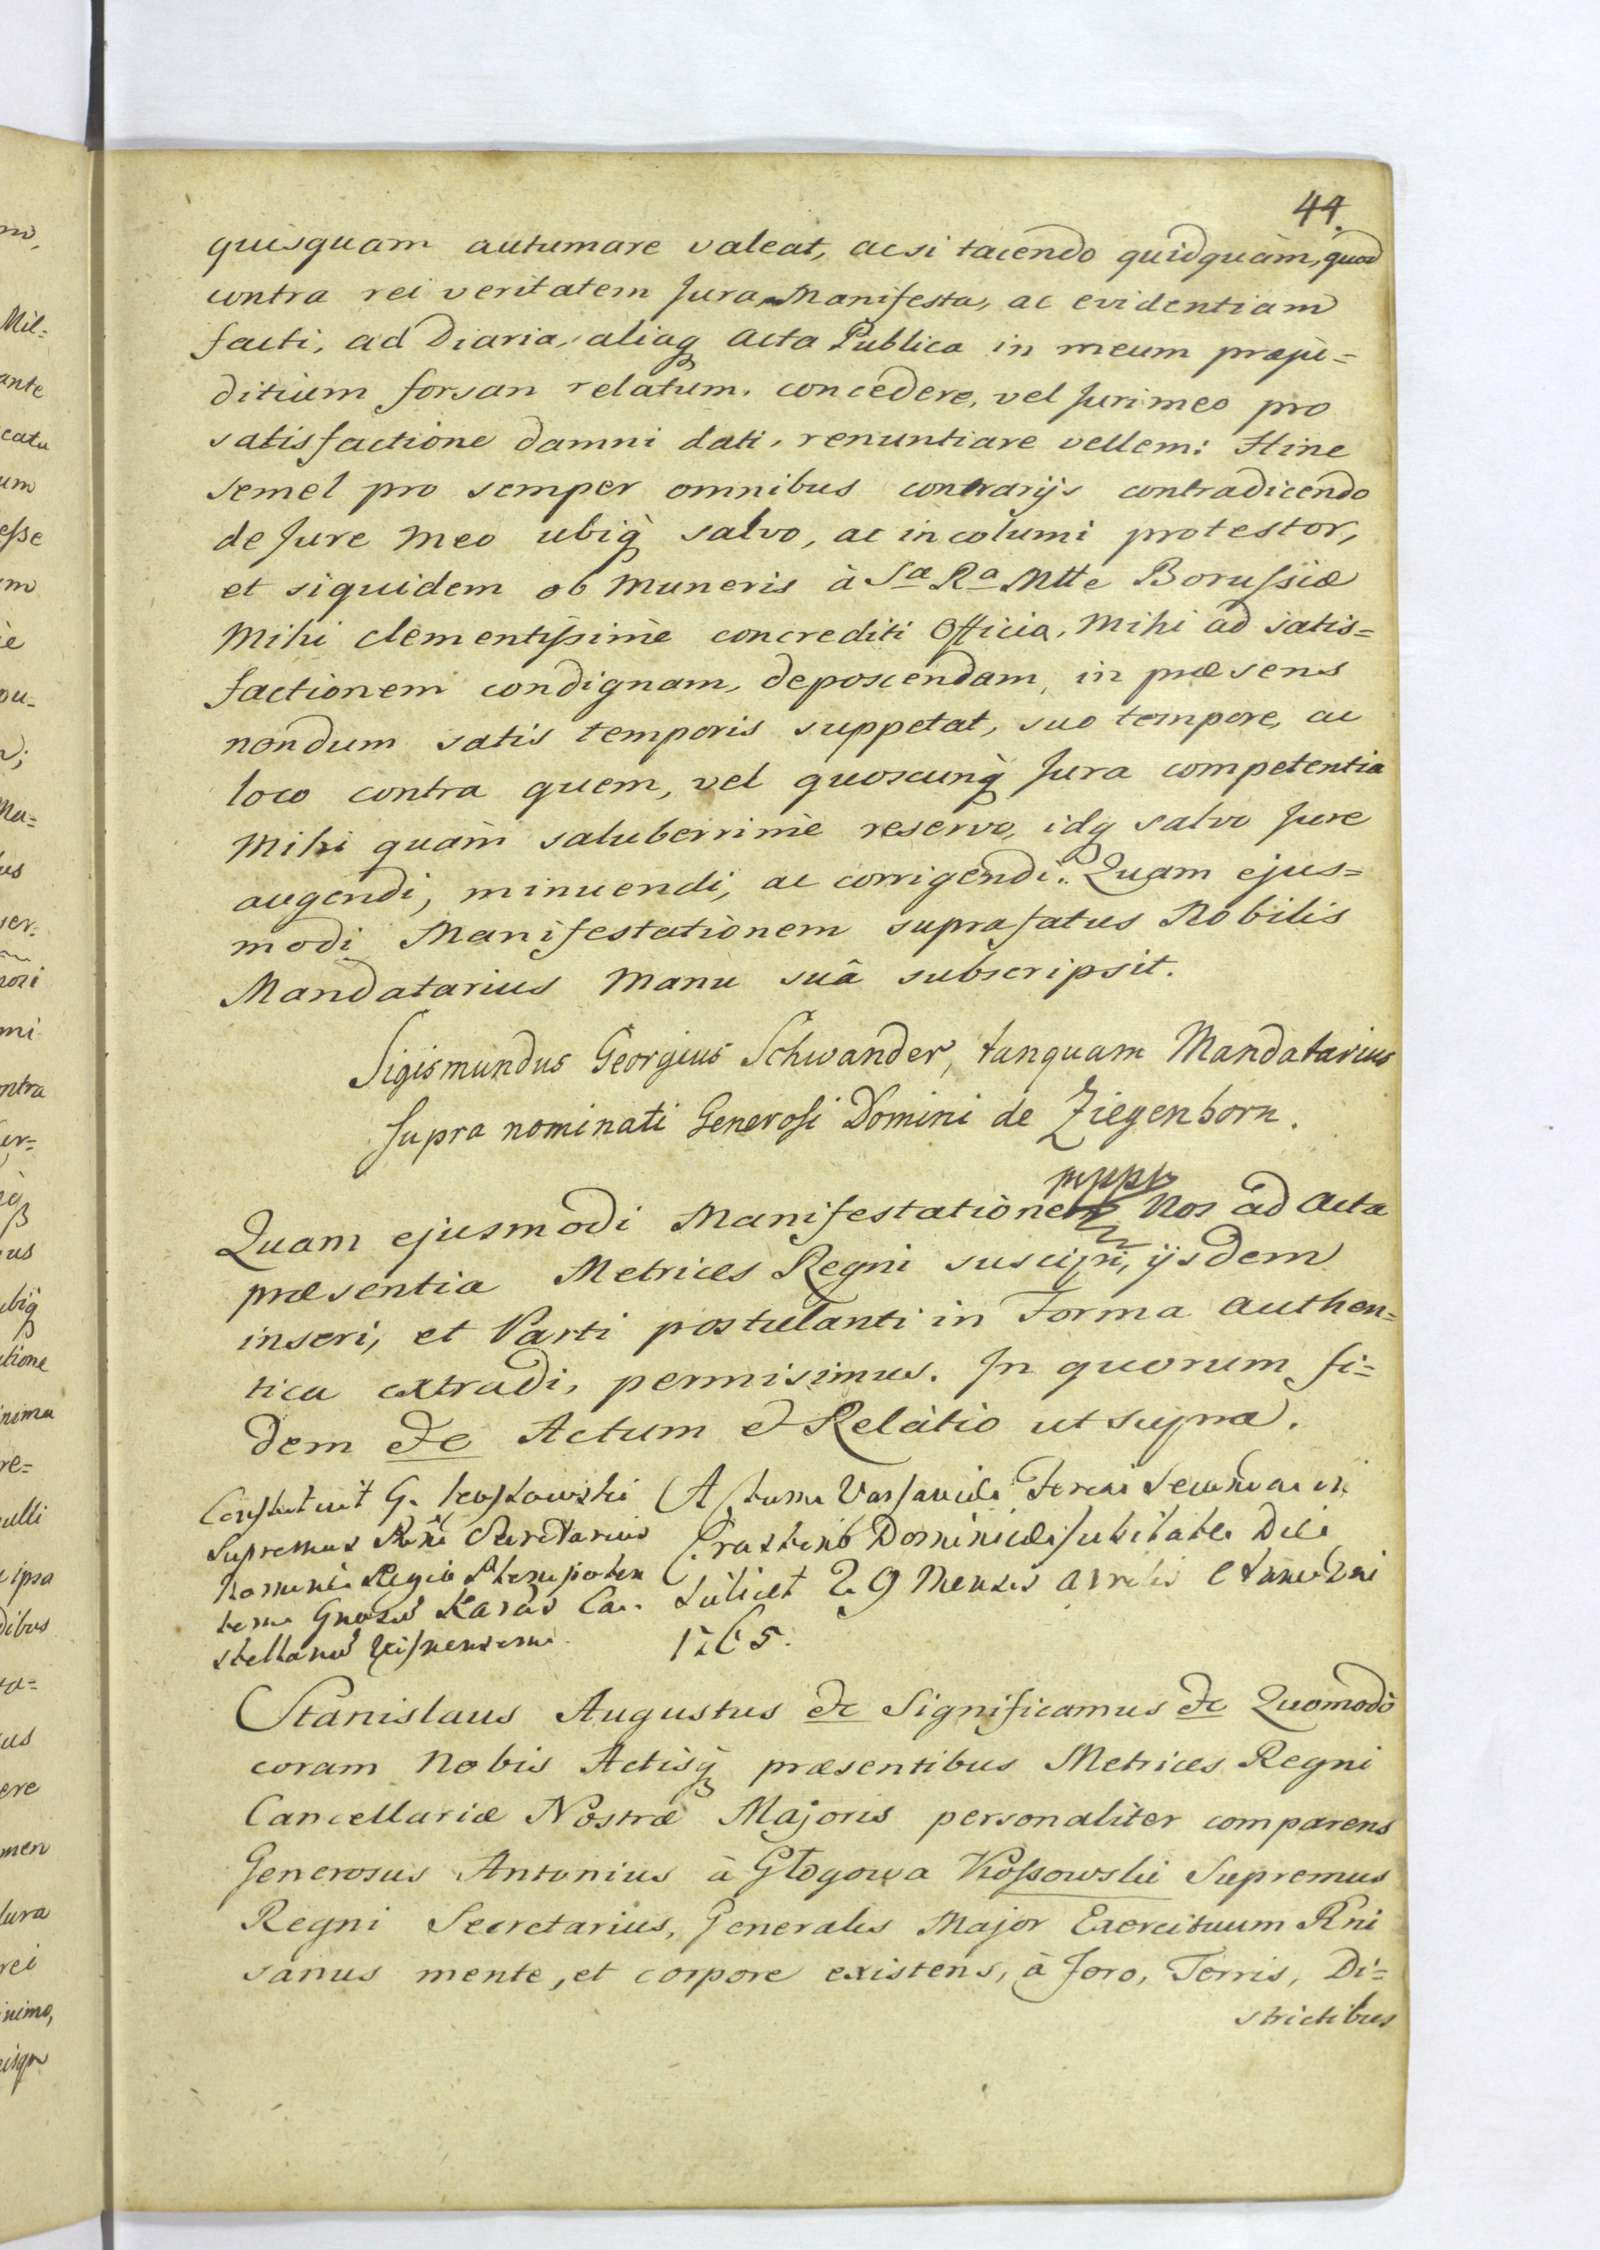 44.
quisquam autumare valeat, acsi tacendo quidquàm, quod
contra rei veritatem Jura Manifesta, ac evidentiam
facti, ad Diaria, aliaq Acta Publica in meum præju=
ditium forsan relatum, concedere, vel Juri meo pro
satisfactione damni dati, renuntiare vellem: Hinc
semel pro semper omnibus contrarijs contradicendo
de Jure Meo ubiq salvo, ac incolumi protestor,
et siquidem ob Muneris à Sa Ra Mtte Borussiæ
Mihi clementissimè concrediti Officia, Mihi ad satis=
factionem condignam, deposcendam, in præsens
nondum satis temporis suppetat, suo tempore, ac
loco contra quem, vel quoscunq Jura competentia
Mihi quàm saluberrimè reservo, idq salvo Jure
augendi, minuendi, ac corrigendi. Quam ejus=
modi Manifestationem suprafatus Nobilis
Mandatarius Manu suâ subscripsit.
Sigismundus Georgius Schwander, tanquam Mandatarius
supra nominati Generosi Domini de Ziegenhorn.
mppr
Quam ejusmodi Manifestationem Nos ad Acta
præsentia Metrices Regni suscipi, ijsdem
inseri, et Parti postulanti in Forma Authen=
tica extradi, permisimus. In quorum fi=
dem &c Actum & Relatio ut supra.
Constituit G. Kossowski
Supremus Rni Secretarius
Nomine Regio Plenipoten
tem Gnosū Karas Ca=
stellanū Wisnensem.
Actum Varsaviæ Feria Secunda in
Crastino Dominicæ Jubilate Die
scilicet 29 Mensis Aprilis Anno Dni
1765.
Stanislaus Augustus &c Significamus &c Quomodò
coram Nobis Actisq præsentibus Metrices Regni
Cancellariæ Nostræ Majoris personaliter comparens
Generosus Antonius à Głogowa Kossowski Supremus
Regni Secretarius, Generalis Major Exercituum Rni
sanus mente, et corpore existens, à Foro, Terris, Di=
strictibus